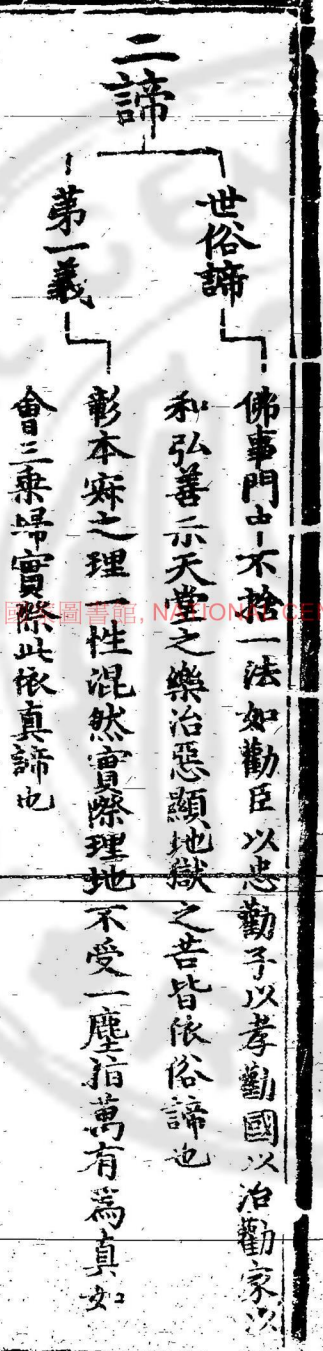 二諦
世俗諦
佛事門中不捨一法如勸臣以忠勸子以孝勸國以治勸家以
和弘善示天堂之樂治惡顯地獄之苦皆依俗諦也
第一義
彰本寂之理一性混然實際理地不受一塵指萬有為真如
會三乘歸實際此依真諦也
國家圖書館, NATIONAL CEN